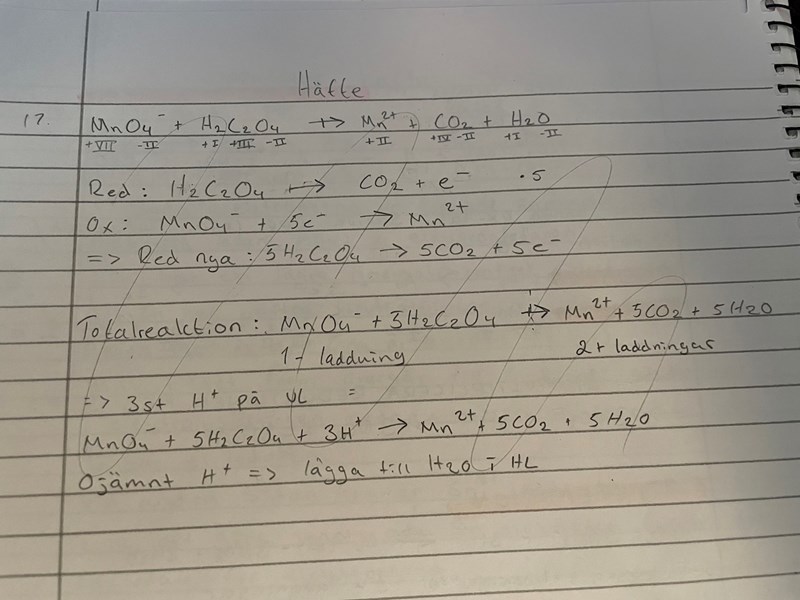 Häfte
17. MnO4⁻ + H2C2O4 → Mn²⁺ + CO2 + H2O
+VII -II +I +III -II +II +IV -II +I -II
Red: H2C2O4 → CO2 + e⁻ ·5
Ox: MnO4⁻ + 5e⁻ → Mn²⁺
=> Red nya: 5H2C2O4 → 5CO2 + 5e⁻
Totalreaktion: MnO4⁻ + 5H2C2O4 → Mn²⁺ + 5CO2 + 5H2O
1- laddning 2+ laddningar
=> 3st H⁺ på VL =
MnO4⁻ + 5H2C2O4 + 3H⁺ → Mn²⁺ + 5CO2 + 5H2O
Ojämnt H⁺ => lägga till H2O i HL